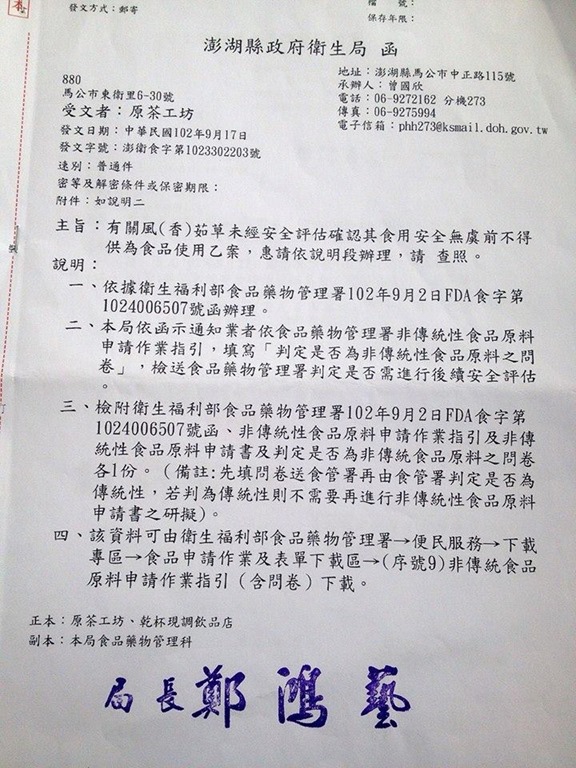 本
發文方式：郵寄
檔　　號：
保存年限：
澎湖縣政府衛生局 函
880
馬公市東衛里6-30號
受文者：原茶工坊
發文日期：中華民國102年9月17日
發文字號：澎衛食字第1023302203號
速別：普通件
密等及解密條件或保密期限：
附件：如說明二
地址：澎湖縣馬公市中正路115號
承辦人：曾國欣
電話：06-9272162 分機273
傳真：06-9275994
電子信箱：phh273@ksmail.doh.gov.tw
主旨：有關風(香)茹草未經安全評估確認其食用安全無虞前不得
供為食品使用乙案，惠請依說明段辦理，請 查照。
說明：
一、依據衛生福利部食品藥物管理署102年9月2日FDA食字第
1024006507號函辦理。
二、本局依函示通知業者依食品藥物管理署非傳統性食品原料
申請作業指引，填寫「判定是否為非傳統性食品原料之問
卷」，檢送食品藥物管理署判定是否需進行後續安全評估
。
三、檢附衛生福利部食品藥物管理署102年9月2日FDA食字第
1024006507號函、非傳統性食品原料申請作業指引及非傳
統性食品原料申請書及判定是否為非傳統食品原料之問卷
各1份。（備註:先填問卷送食管署再由食管署判定是否為
傳統性，若判為傳統性則不需要再進行非傳統性食品原料
申請書之研擬）。
四、該資料可由衛生福利部食品藥物管理署→便民服務→下載
專區→食品申請作業及表單下載區→(序號9)非傳統食品
原料申請作業指引（含問卷）下載。
正本：原茶工坊、乾杯現調飲品店
副本：本局食品藥物管理科
局長鄭鴻藝